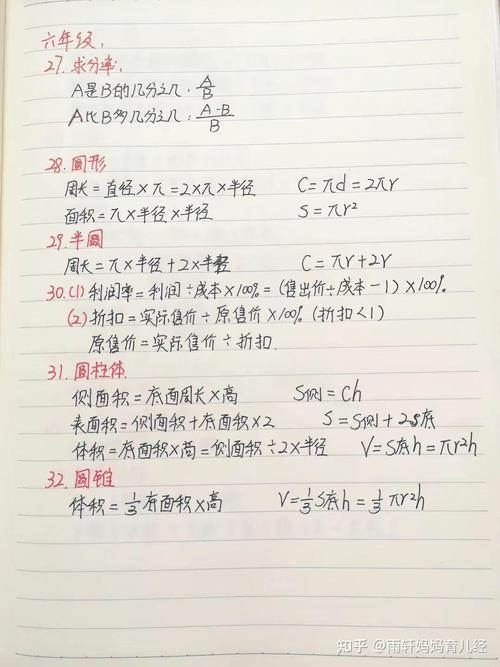 六年级：
27. 求分率：
A是B的几分之几：A/B
A比B多几分之几：(A-B)/B
28. 圆形
周长=直径×π=2×π×半径 C=πd=2πr
面积=π×半径×半径 S=πr²
29. 半圆
周长=π×半径+2×半径 C=πr+2r
30. (1) 利润率=利润÷成本×100%=(售出价÷成本-1)×100%.
(2) 折扣=实际售价÷原售价×100% (折扣<1)
原售价=实际售价÷折扣.
31. 圆柱体
侧面积=底面周长×高 S侧=Ch
表面积=侧面积+底面积×2 S=S侧+2S底
体积=底面积×高=侧面积÷2×半径 V=S底h=πr²h
32. 圆锥
体积=1/3底面积×高 V=1/3S底h=1/3πr²h
知乎 @雨轩妈妈育儿经